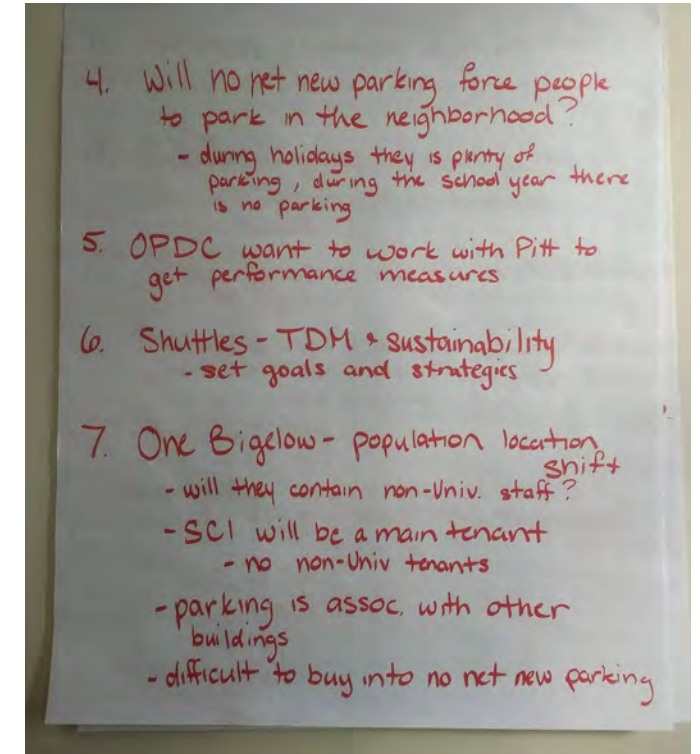 4. Will no net new parking force people
to park in the neighborhood?
- during holidays they is plenty of
parking, during the school year there
is no parking
5. OPDC want to work with Pitt to
get performance measures
6. Shuttles - TDM & sustainability
- set goals and strategies
7. One Bigelow - population location
shift
- will they contain non-Univ. staff?
- SCI will be a main tenant
- no non-Univ tenants
- parking is assoc. with other
buildings
- difficult to buy into no net new parking